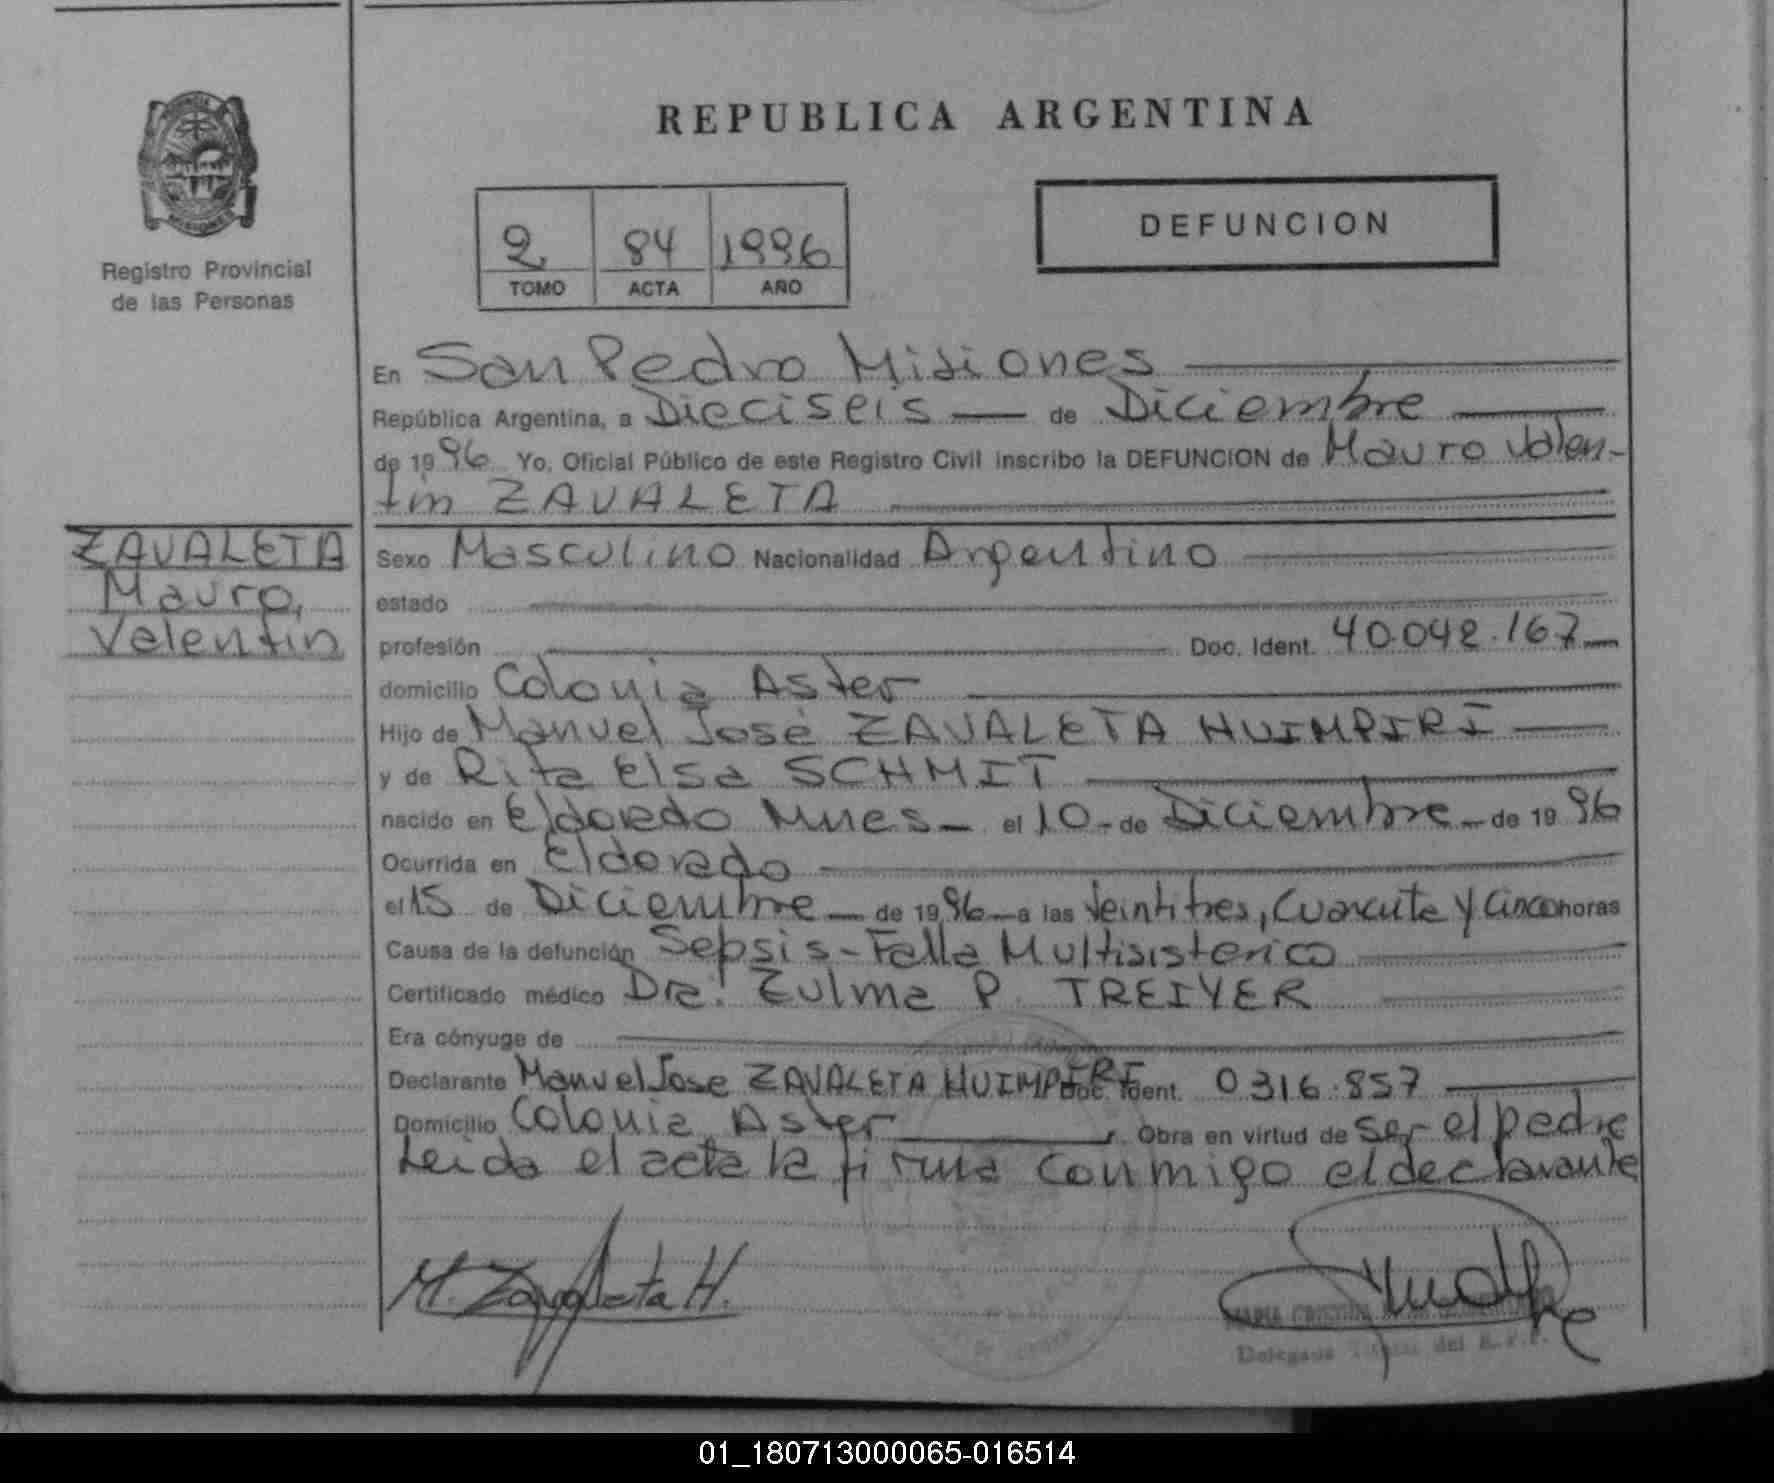 REPUBLICA ARGENTINA
Registro Provincial
de las Personas
2 84 1996
TOMO ACTA AÑO
DEFUNCION
En San Pedro Misiones
República Argentina, a Dieciseis de Diciembre
de 1996 Yo, Oficial Público de este Registro Civil inscribo la DEFUNCION de Mauro Valen-
tin ZAVALETA
ZAVALETA
Mauro,
Valentin
Sexo Masculino Nacionalidad Argentino
estado
profesión Doc. Ident. 40.042.167
domicilio Colonia Aster
Hijo de Manuel José ZAVALETA HUIMPIRI
y de Rita Elsa SCHMIT
nacido en Eldorado Mnes el 10 de Diciembre de 1996
Ocurrida en Eldorado
el 15 de Diciembre de 1996 a las Veintitres, Cuarenta y Cinco horas
Causa de la defunción Sepsis - Falla Multisisterico
Certificado médico Dra. Zulma P. TREIYER
Era cónyuge de
Declarante Manuel Jose ZAVALETA HUIMPIRI Doc. Ident. 0316.857
Domicilio Colonia Aster Obra en virtud de ser el padre
Leida el acta la firma conmigo el declarante
M. Zavaleta H.
Delegada del R.P.P.
01_180713000065-016514